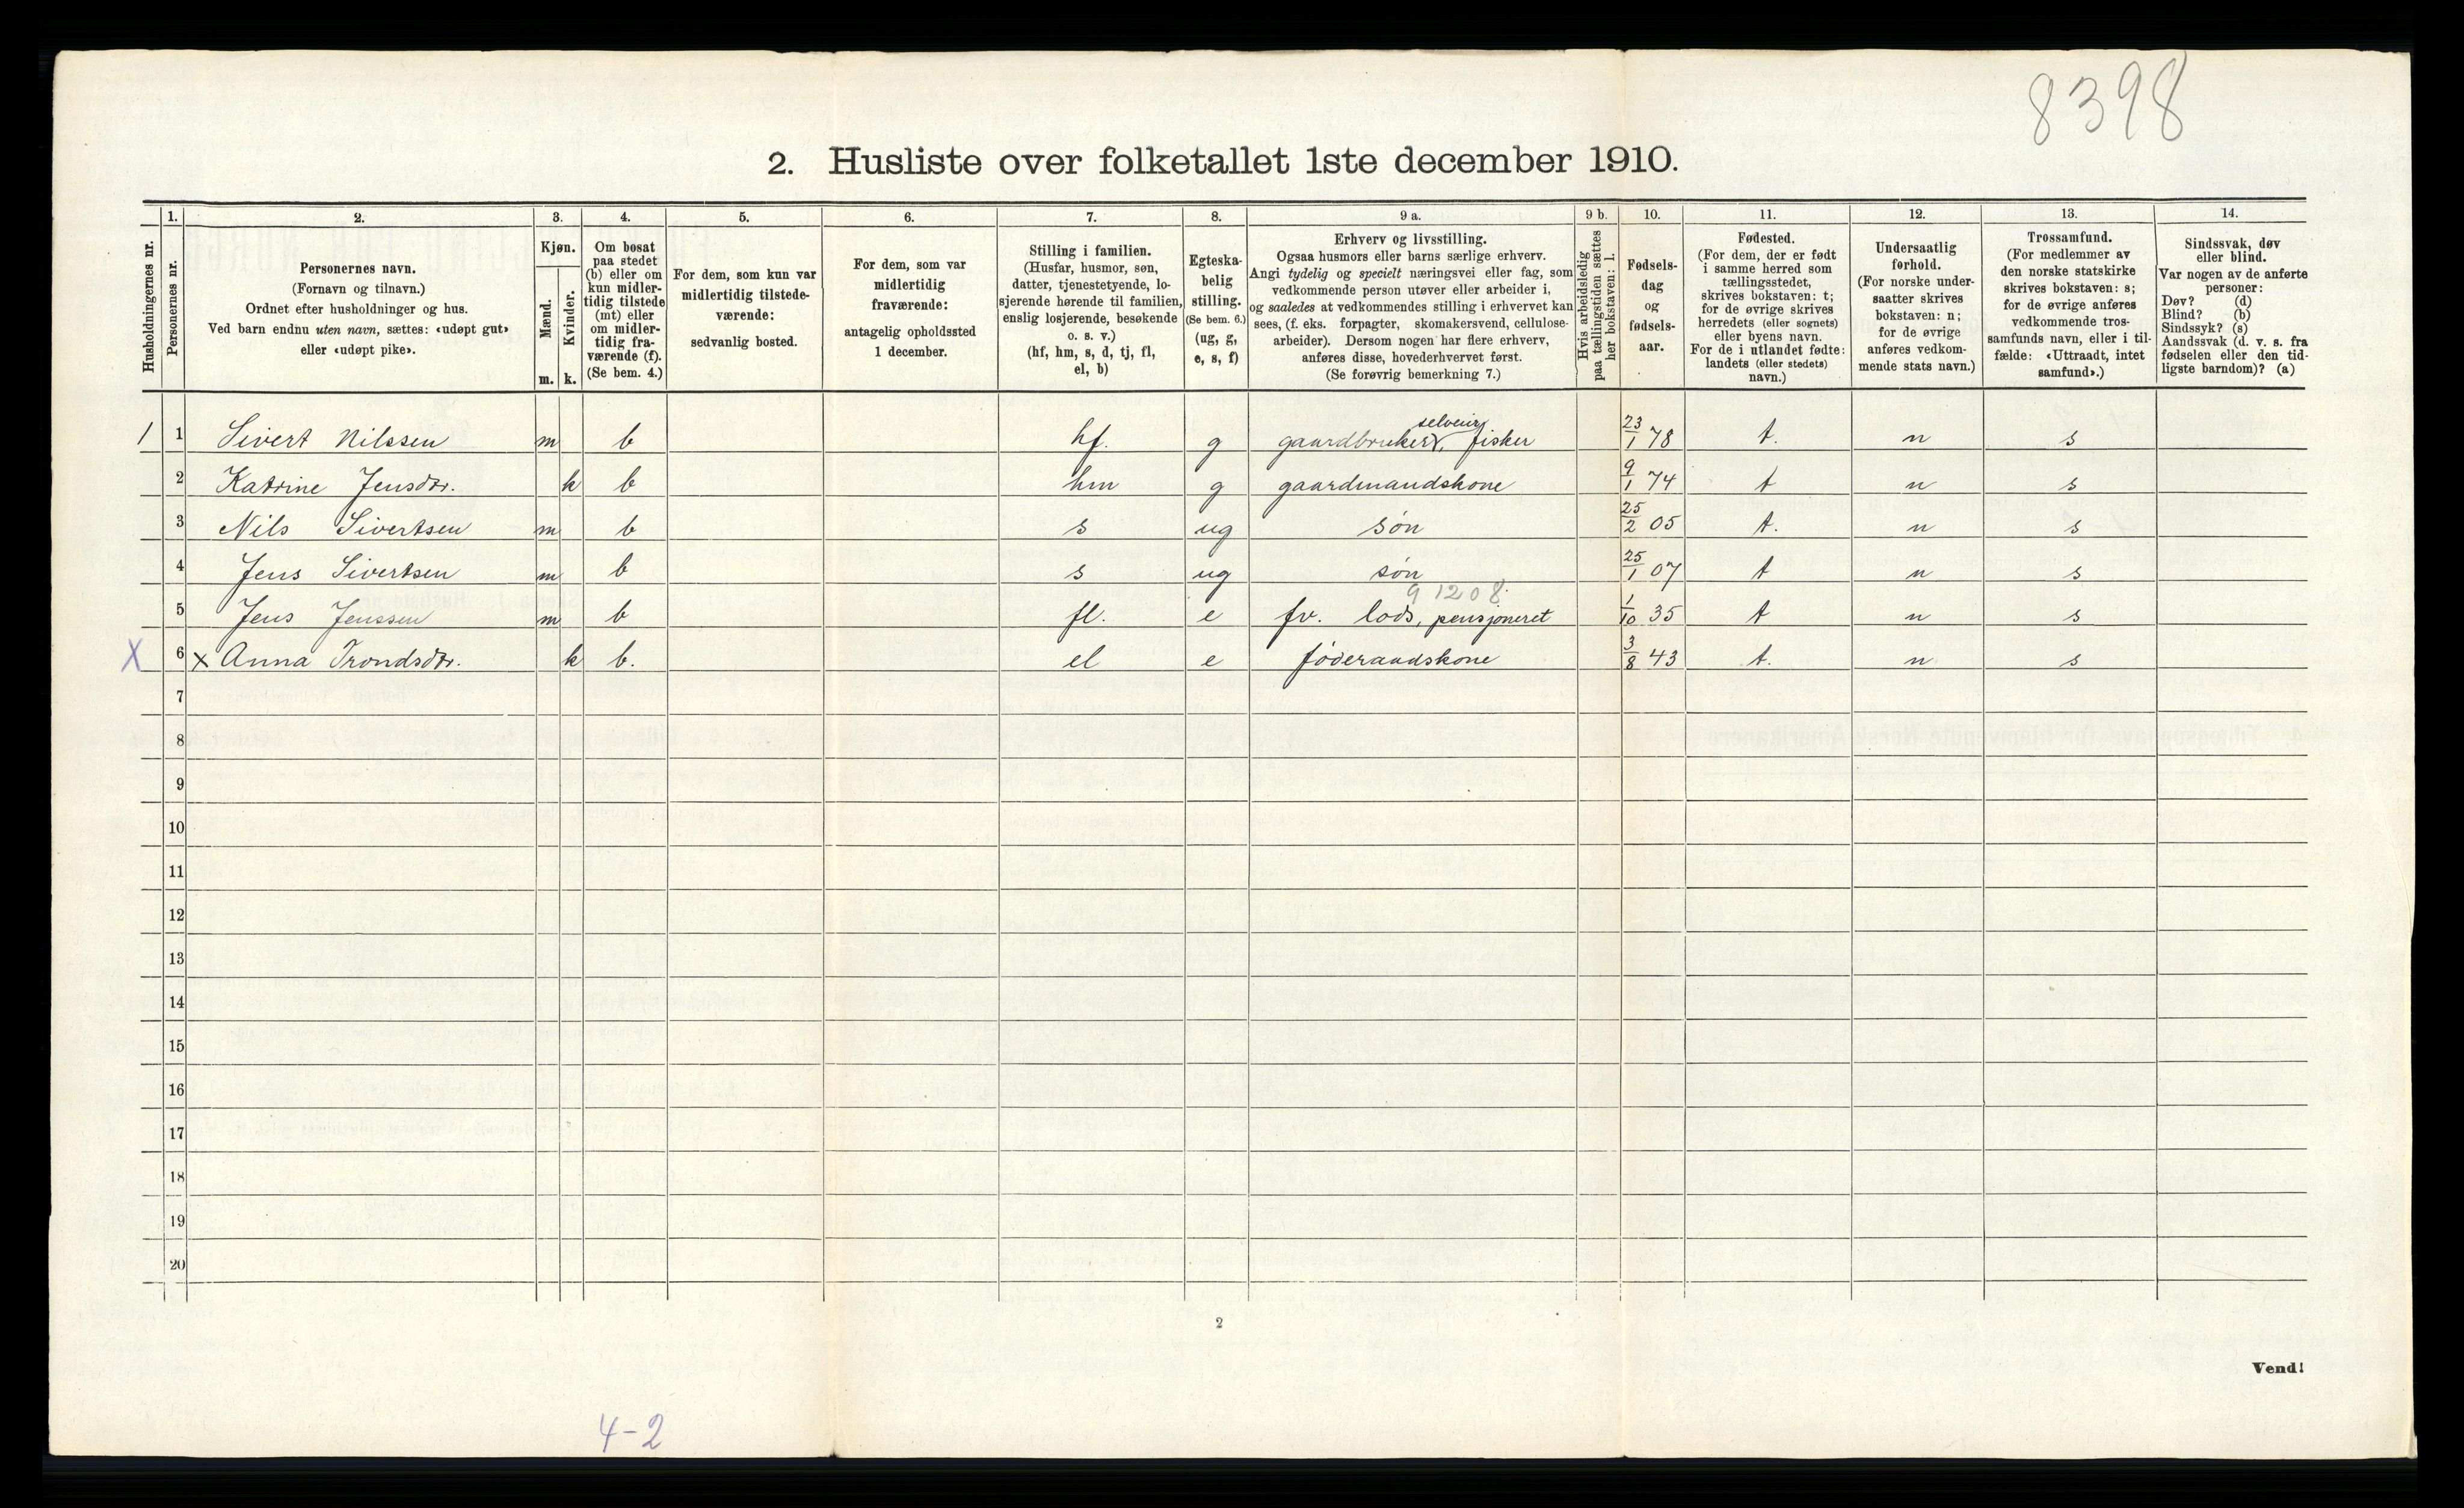 8398
2. Husliste over folketallet 1ste december 1910.
Husholdningernes nr.
1.
Personernes nr.
2.
Personernes navn.
(Fornavn og tilnavn.)
Ordnet efter husholdninger og hus.
Ved barn endnu uten navn, sættes: «udøpt gut»
eller «udøpt pike».
3.
Kjøn.
Mænd.
m.
Kvinder.
k.
4.
Om bosat
paa stedet
(b) eller om
kun midler-
tidig tilstede
(mt) eller
om midler-
tidig fra-
værende (f).
(Se bem. 4.)
5.
For dem, som kun var
midlertidig tilstede-
værende:
sedvanlig bosted.
6.
For dem, som var
midlertidig
fraværende:
antagelig opholdssted
1 december.
7.
Stilling i familien.
(Husfar, husmor, søn,
datter, tjenestetyende, lo-
sjerende hørende til familien,
enslig losjerende, besøkende
o. s. v.)
(hf, hm, s, d, tj, fl,
el, b)
8.
Egteska-
belig
stilling.
(Se bem. 6.)
(ug, g,
e, s, f)
9 a.
Erhverv og livsstilling.
Ogsaa husmors eller barns særlige erhverv.
Angi tydelig og specielt næringsvei eller fag, som
vedkommende person utøver eller arbeider i,
og saaledes at vedkommendes stilling i erhvervet kan
sees, (f. eks. forpagter, skomakersvend, cellulose-
arbeider). Dersom nogen har flere erhverv,
anføres disse, hovederhvervet først.
(Se forøvrig bemerkning 7.)
9 b.
Hvis arbeidsledig
paa tællingstiden sættes
her bokstaven: l.
10.
Fødsels-
dag
og
fødsels-
aar.
11.
Fødested.
(For dem, der er født
i samme herred som
tællingsstedet,
skrives bokstaven: t;
for de øvrige skrives
herredets (eller sognets)
eller byens navn.
For de i utlandet fødte:
landets (eller stedets)
navn.)
12.
Undersaatlig
forhold.
(For norske under-
saatter skrives
bokstaven: n;
for de øvrige
anføres vedkom-
mende stats navn.)
13.
Trossamfund.
(For medlemmer av
den norske statskirke
skrives bokstaven: s;
for de øvrige anføres
vedkommende tros-
samfunds navn, eller i til-
fælde: «Uttraadt, intet
samfund».)
14.
Sindssvak, døv
eller blind.
Var nogen av de anførte
personer:
Døv? (d)
Blind? (b)
Sindssyk? (s)
Aandssvak (d. v. s. fra
fødselen eller den tid-
ligste barndom)? (a)
1 1 Sivert Nilssen m b hf. g gaardbruker selveier, fisker 23/1 78 t. n s
2 Katrine Jensdtr. k b hm g gaardmandskone 9/1 74 t n s
3 Nils Sivertsen m b s ug søn 25/2 05 t. n s
4 Jens Sivertsen m b s ug søn 25/1 07 t n s
9 1208.
5 Jens Jenssen m b fl. e fv. lods, pensjoneret 1/10 35 t n s
X 6 x Anna Trondsdtr. k b. el e føderaadskone 3/8 43 t. n s
7
8
9
10
11
12
13
14
15
16
17
18
19
20
2
Vend!
4-2